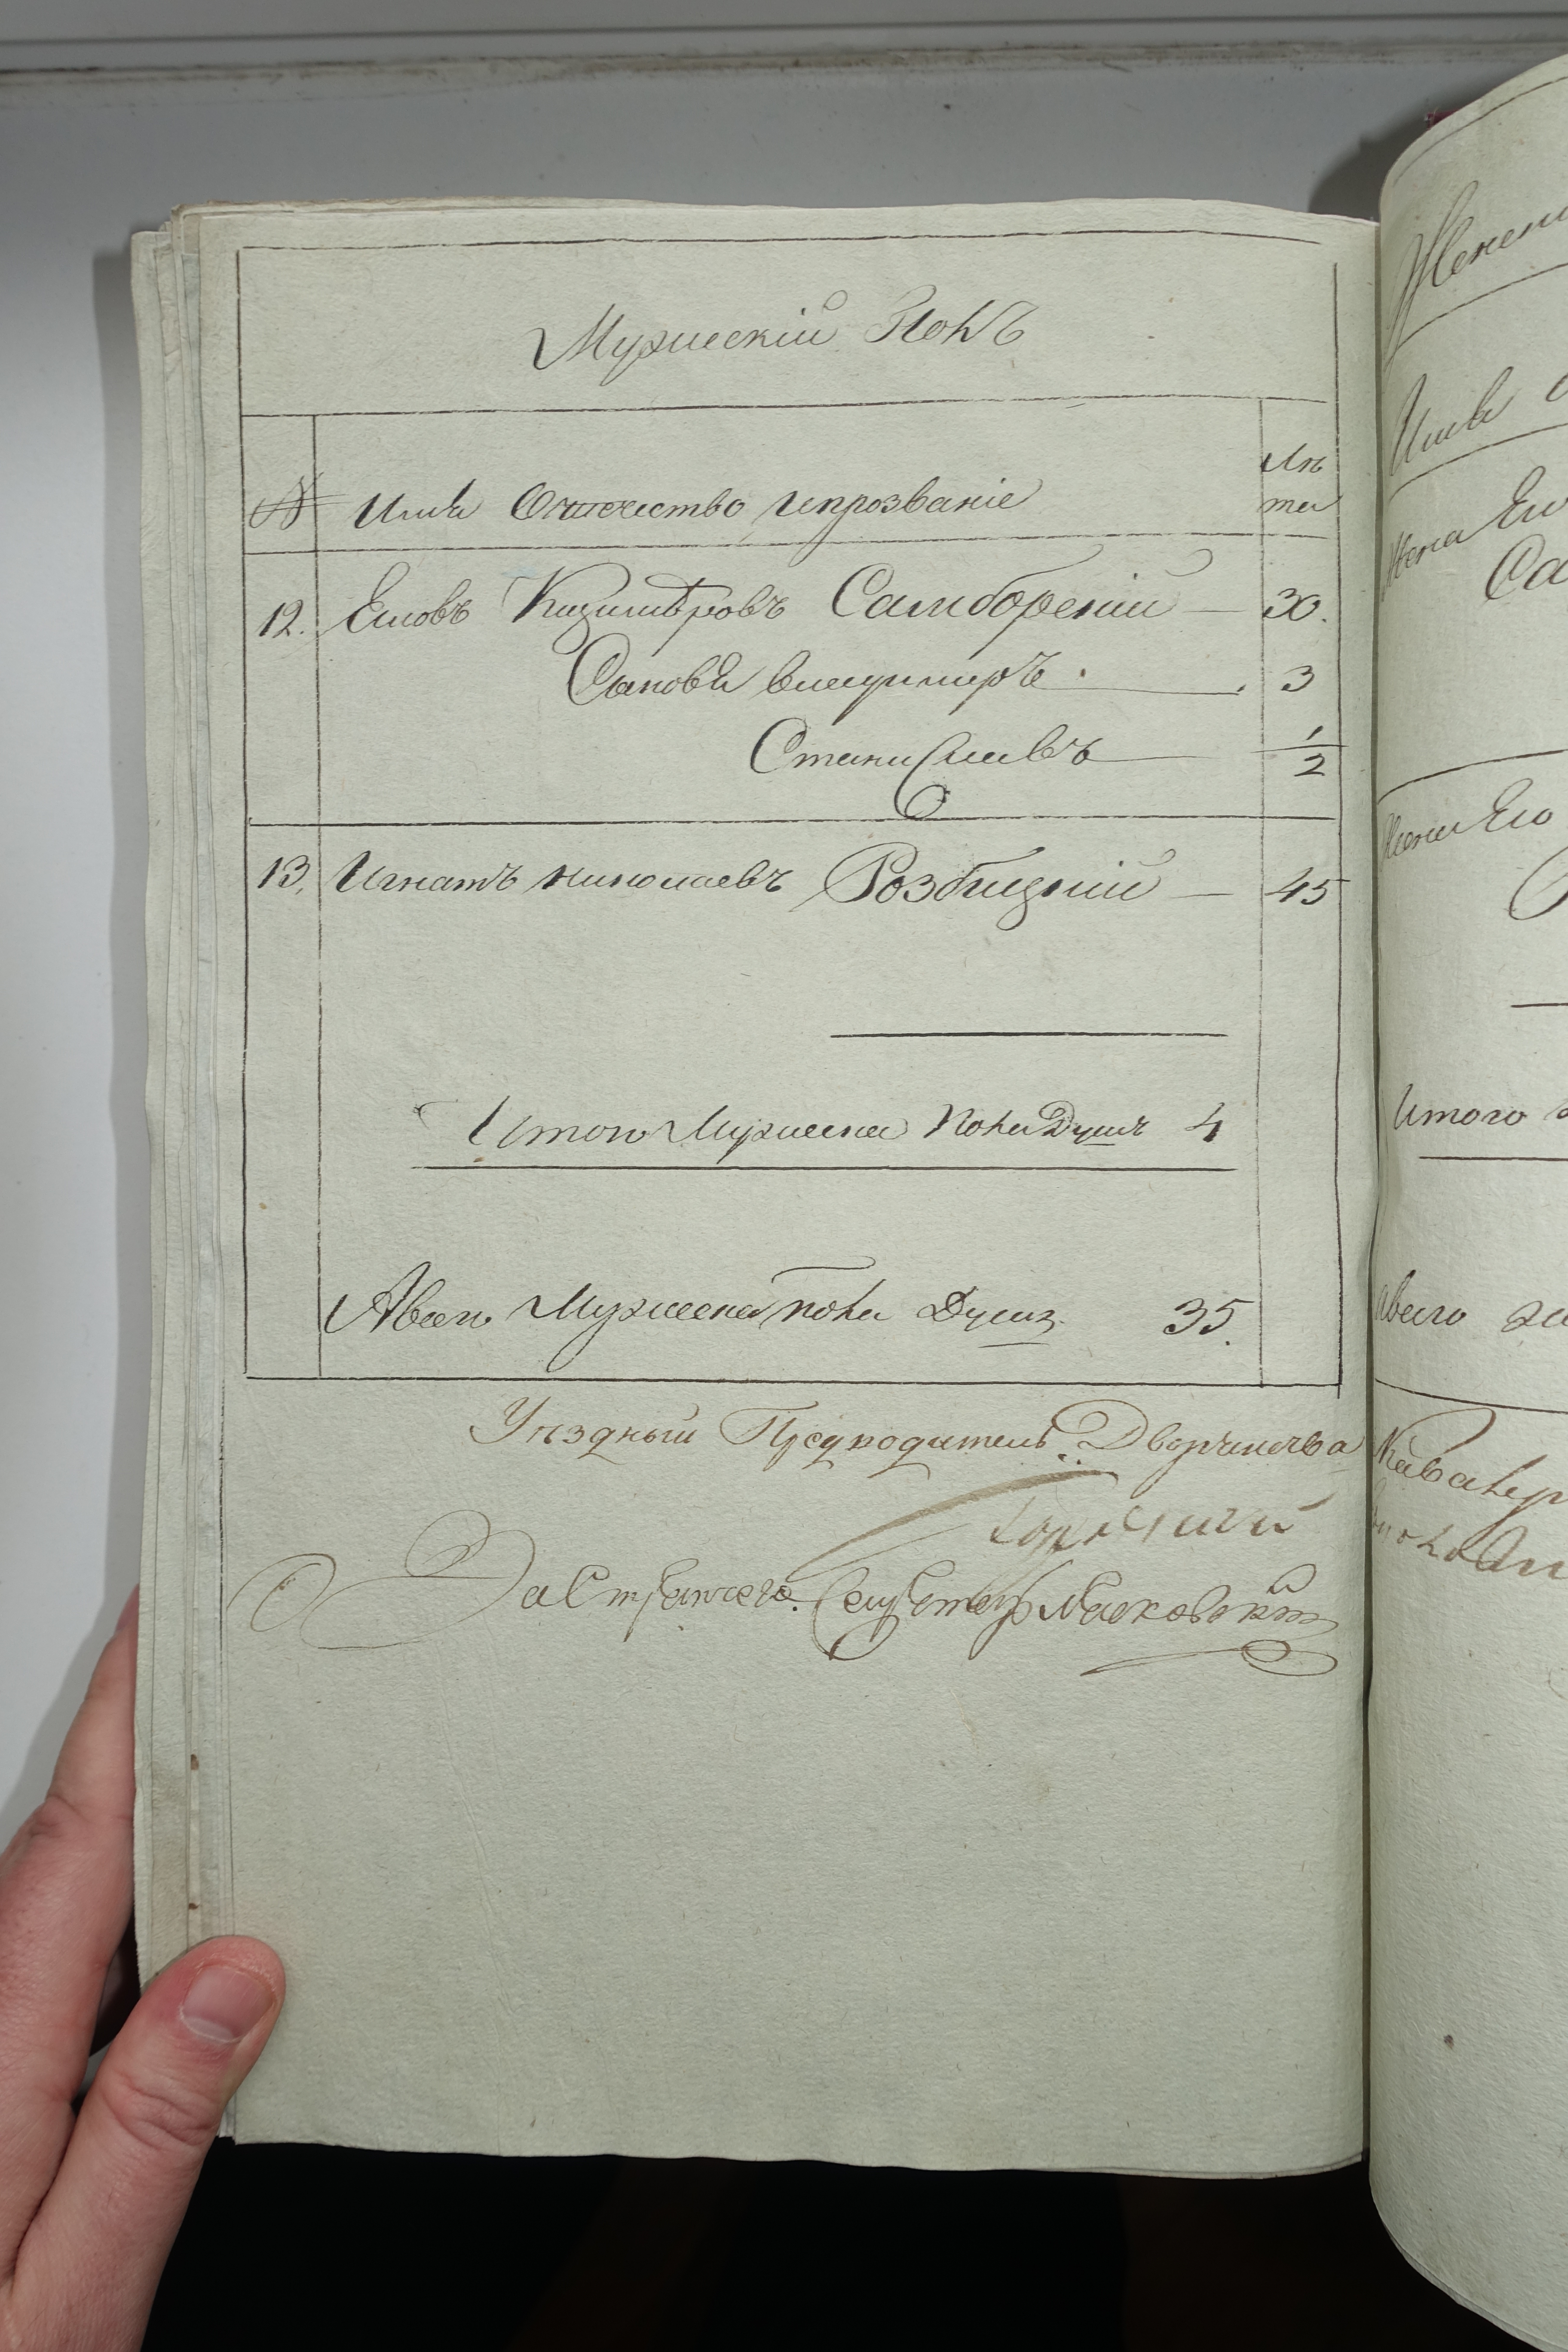 Мужескій Полъ
№ Имя Отчество ипрозваніе Лѣ
та
12. Елювъ Казимѣровъ Самборскій — 30.
Сыновья владимиръ. 3
Станиславъ 1/2
13. Игнатъ николаевъ Розбицкій — 45
Итого Мужеска пола Душъ 4
Авсего Мужеска пола Душъ 35.
Уѣздный Предводитель Дворянства
За Стряпчего. Секретарь
Женски
Имя
жена Его
Са
жена Его
Р
Итого
Авсего
Кавалер